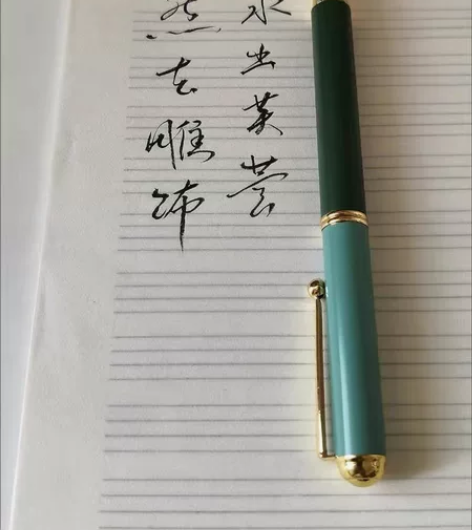 水出芙蓉
然去雕饰